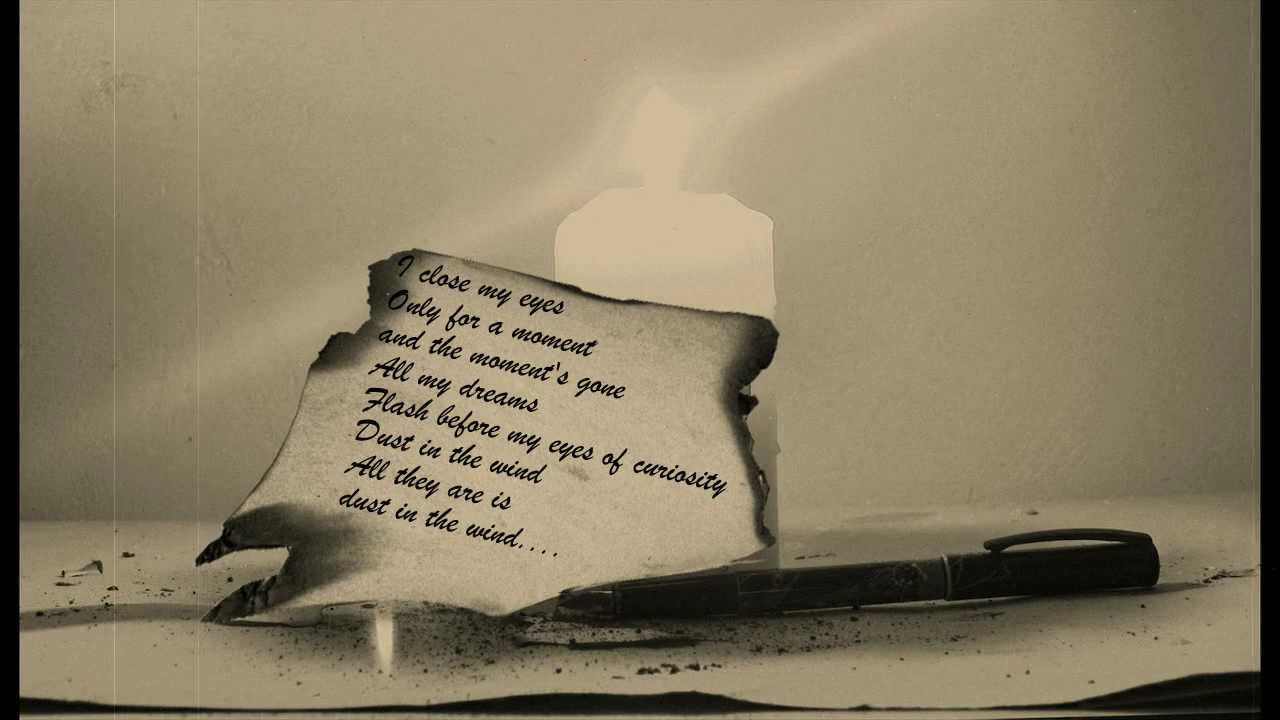 I close my eyes
Only for a moment
and the moment's gone
All my dreams
Flash before my eyes of curiosity
Dust in the wind
All they are is
dust in the wind....